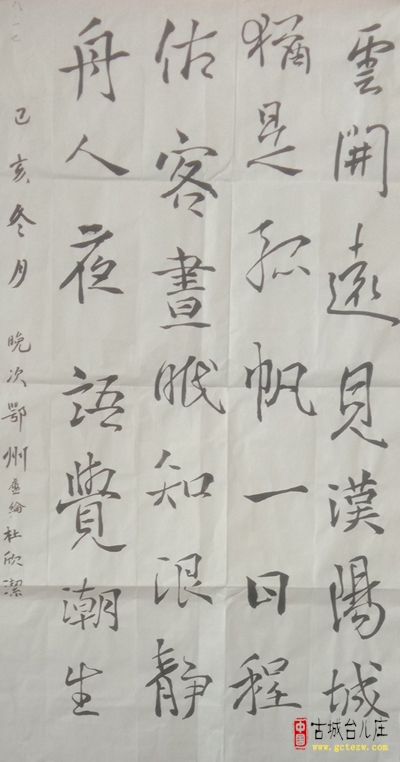 雲開遠見漢陽城
猶是孤帆一日程
估客晝眠知浪静
舟人夜語覺潮生
己亥冬月 晚次鄂州 盧綸 杜欣潔
中国
古城台儿庄
www.gctezw.com